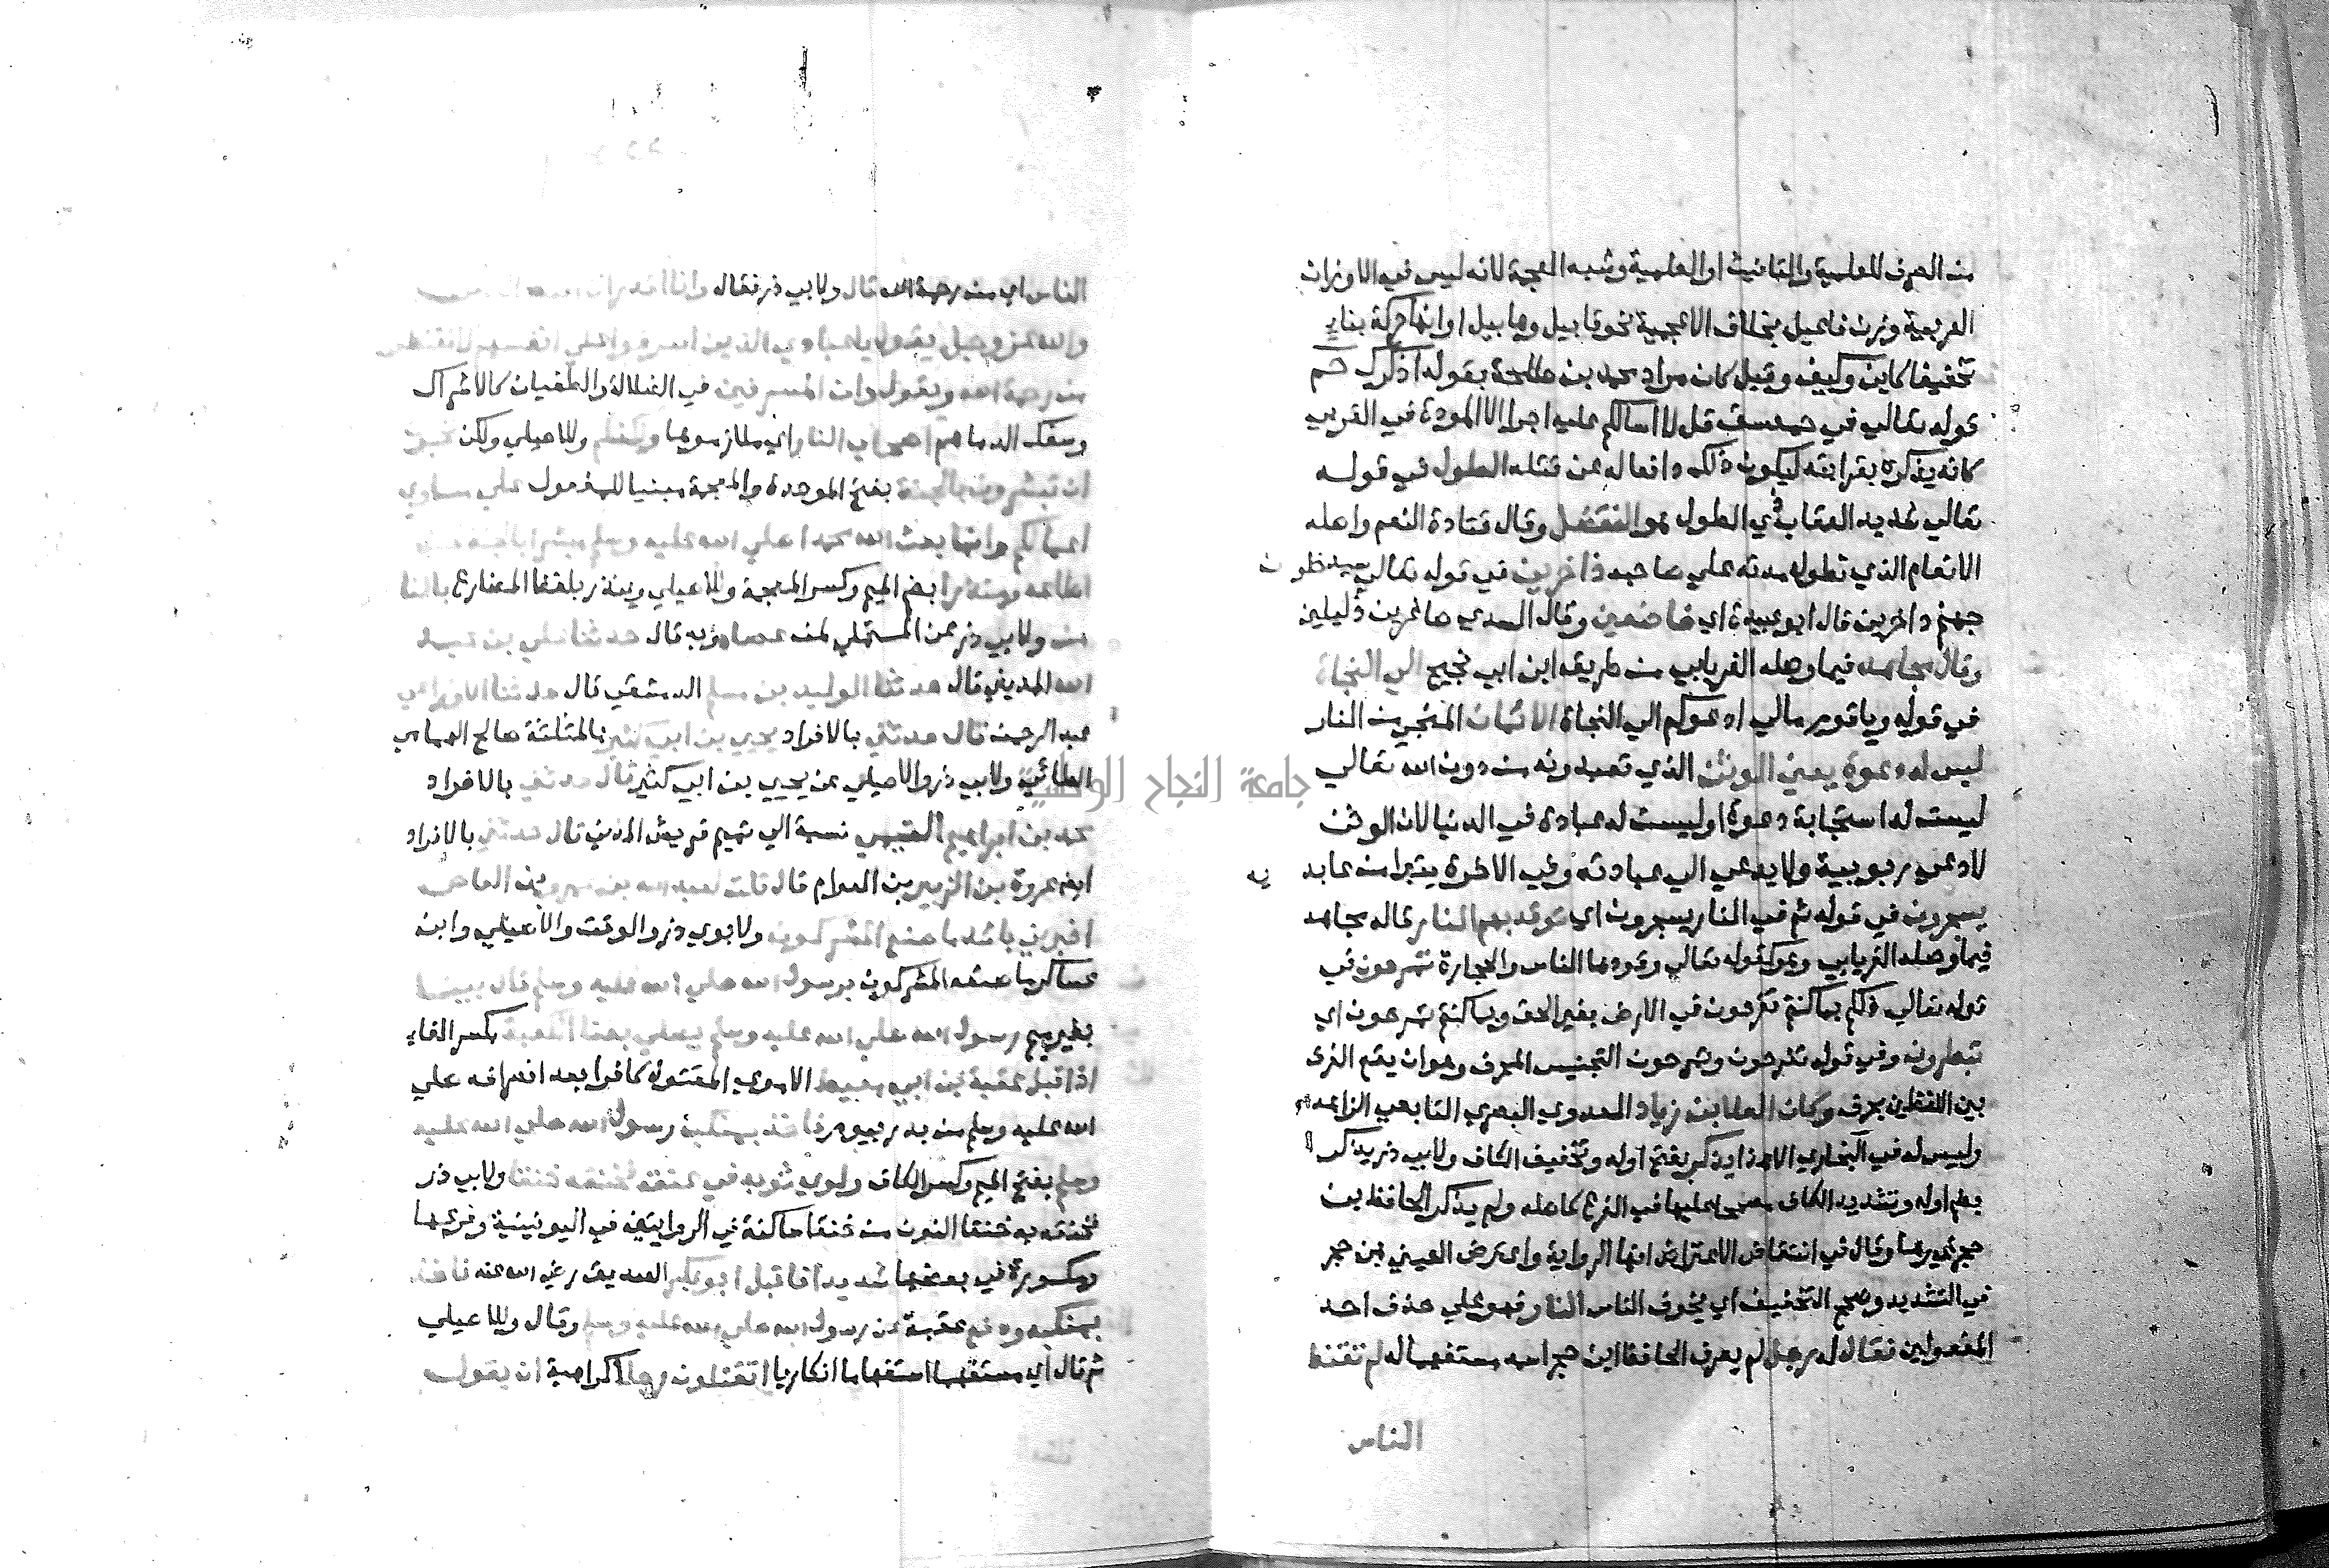 من الصرف للعلمية والتانيث او العلمية وشبه العجمة لانه ليس في الاوزان
العربية وزن فاعيل بخلاف الاعجمية نحو قابيل وهابيل او انها حركة بناء
تخفيفا كاين وكيف وقيل كان مراد محمد بن طلحة بقوله اذكرك حم
قوله تعالي في حمعسق قل لا اسالكم عليه اجرا الا المودة في القربي
كانه يذكره بقرابته ليكون ذلك دافعا له عن قتله الطول في قوله
تعالي شديد العقاب ذي الطول هو التفضل وقال قتادة النعم واصله
الانعام الذي تطول مدته علي صاحبه داخرين في قوله تعالي سيدخلون
جهنم داخرين قال ابو عبيدة اي خاضعين وقال السدي صاغرين ذليلين
وقال مجاهد فيما وصله الفريابي من طريق ابن ابي نجيح الي النجاة
في قوله وياقوم مالي ادعوكم الي النجاة الايمان المنجي من النار
ليس له دعوة يعني الوثن الذي تعبدونه من دون الله تعالي
ليست له استجابة دعوة او ليست له عبادة في الدنيا لان الوثن
لا دعي ربوبية ولا يدعي الي عبادته وفي الاخرة يتبرا من عابديه
يسجرون في قوله ثم في النار يسجرون اي توقد بهم النار قاله مجاهد
فيما وصله الفريابي وهو كقوله تعالي وقودها الناس والحجارة تمرحون في
قوله تعالي ذلكم بما كنتم تفرحون في الارض بغير الحق وبما كنتم تمرحون اي
تبطرون وفي قوله تفرحون وتمرحون التجنيس المحرف وهو ان يقع الفرق
بين اللفظين بحرف وكان العلا بن زياد العدوي البصري التابعي الزاهد
وليس له في البخاري الا هذا يذكر بفتح اوله وتخفيف الكاف ولابي ذر يذكر
بضم اوله وتشديد الكاف مصححا عليها في الفرع كاصله ولم يذكر الحافظ بن
حجر غيرها وقال في انتقاض الاعتراض انها الرواية واعترض العيني بن حجر
في التشديد وصحح التخفيف اي يخوف الناس النار فهو علي حذف احد
المفعولين فقال له رجل لم يعرف الحافظ ابن حجر اسمه مستفهما له لم تقنط
الناس
الناس اي من رحمة الله قال ولابي ذر فقال وانا اقدر ان
والله عز وجل يقول يا عبادي الذين اسرفوا علي انفسهم لا تقنطوا
من رحمة الله ويقول وان المسرفين في الضلالة والطغيان كالاشراك
وسفك الدما هم اصحاب النار اي ملازموها ولكنكم وللاصيلي ولكن تحبون
ان تبشروا بالجنة بفتح الموحدة والمعجمة مبنيا للمفعول علي مساوي
اعمالكم وانما بعث الله محمدا صلي الله عليه وسلم مبشرا بالجنة لمن
اطاعه ومنذرا بضم الميم وكسر المعجمة وللاصيلي وينذر بلفظ المضارع بالنا
من ولابي ذر عن المستملي لمن عصاه وبه قال حدثنا علي بن عبد
الله المديني قال حدثنا الوليد بن مسلم الدمشقي قال حدثنا الاوزاعي
عبد الرحمن قال حدثني بالافراد يحيي بن ابي كثير بالمثلثة صالح اليمامي
الطائي ولابي ذر والاصيلي عن يحيي بن ابي كثير قال حدثني بالافراد
محمد بن ابراهيم التيمي نسبة الي تيم قريش المدني قال حدثني بالافراد
ايضا عروة بن الزبير بن العوام قال قلت لعبد الله بن عمرو بن العاص
اخبرني باشد ما صنع المشركون ولابوي ذر والوقت والاصيلي وابن
عساكر ما صنعه المشركون برسول الله صلي الله عليه وسلم قال بينا
بغير ميم رسول الله صلي الله عليه وسلم يصلي بفنا الكعبة بكسر الفاء
اذ اقبل عقبة بن ابي معيط الاموي المقتول كافرا بعد انصرافه صلي
الله عليه وسلم من بدر بيوم فاخذ بمنكب رسول الله صلي الله عليه
وسلم بفتح الميم وكسر الكاف ولوي ثوبه في عنقه فخنقه خنقا ولابي ذر
فخنقه به خنقا النون من خنقا ساكنة في الروايتين في اليونينية وفرعها
ومكسورة في بعضها شديدا فاقبل ابو بكر الصديق رضي الله عنه فاخذ
بمنكبه ودفع عقبة عن رسول الله صلي الله عليه وسلم وقال وللاصيلي
ثم قال اي مستفهما استفهاما انكاريا اتقتلون رجلا كراهية ان يقول
جامعة النجاح الوطنية